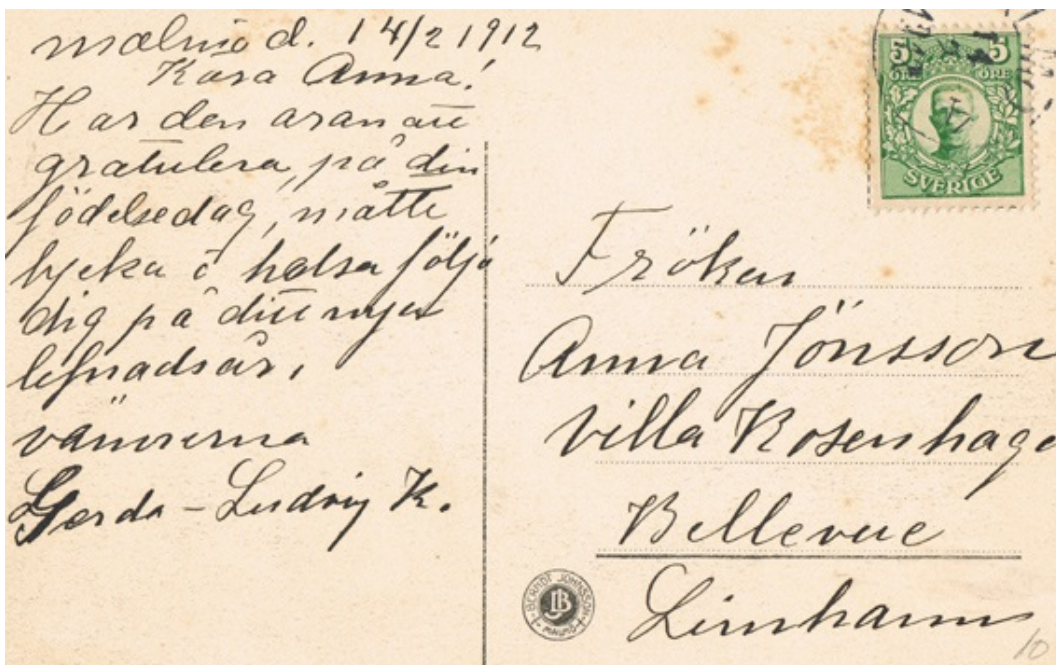 Malmö d. 14/2 1912
Kära Anna!
Har den äran att
gratulera, på din
födelsedag, måtte
lycka o helsa följa
dig på ditt nya
lefnadsår,
vännerna
Gerda - Ludvig K.
5 5
ÖRE ÖRE
SVERIGE
Fröken
Anna Jönsson
Villa Rosenhage
Bellevue
Limhamn
BERNDT JOHNSSON
JB
MALMÖ
10